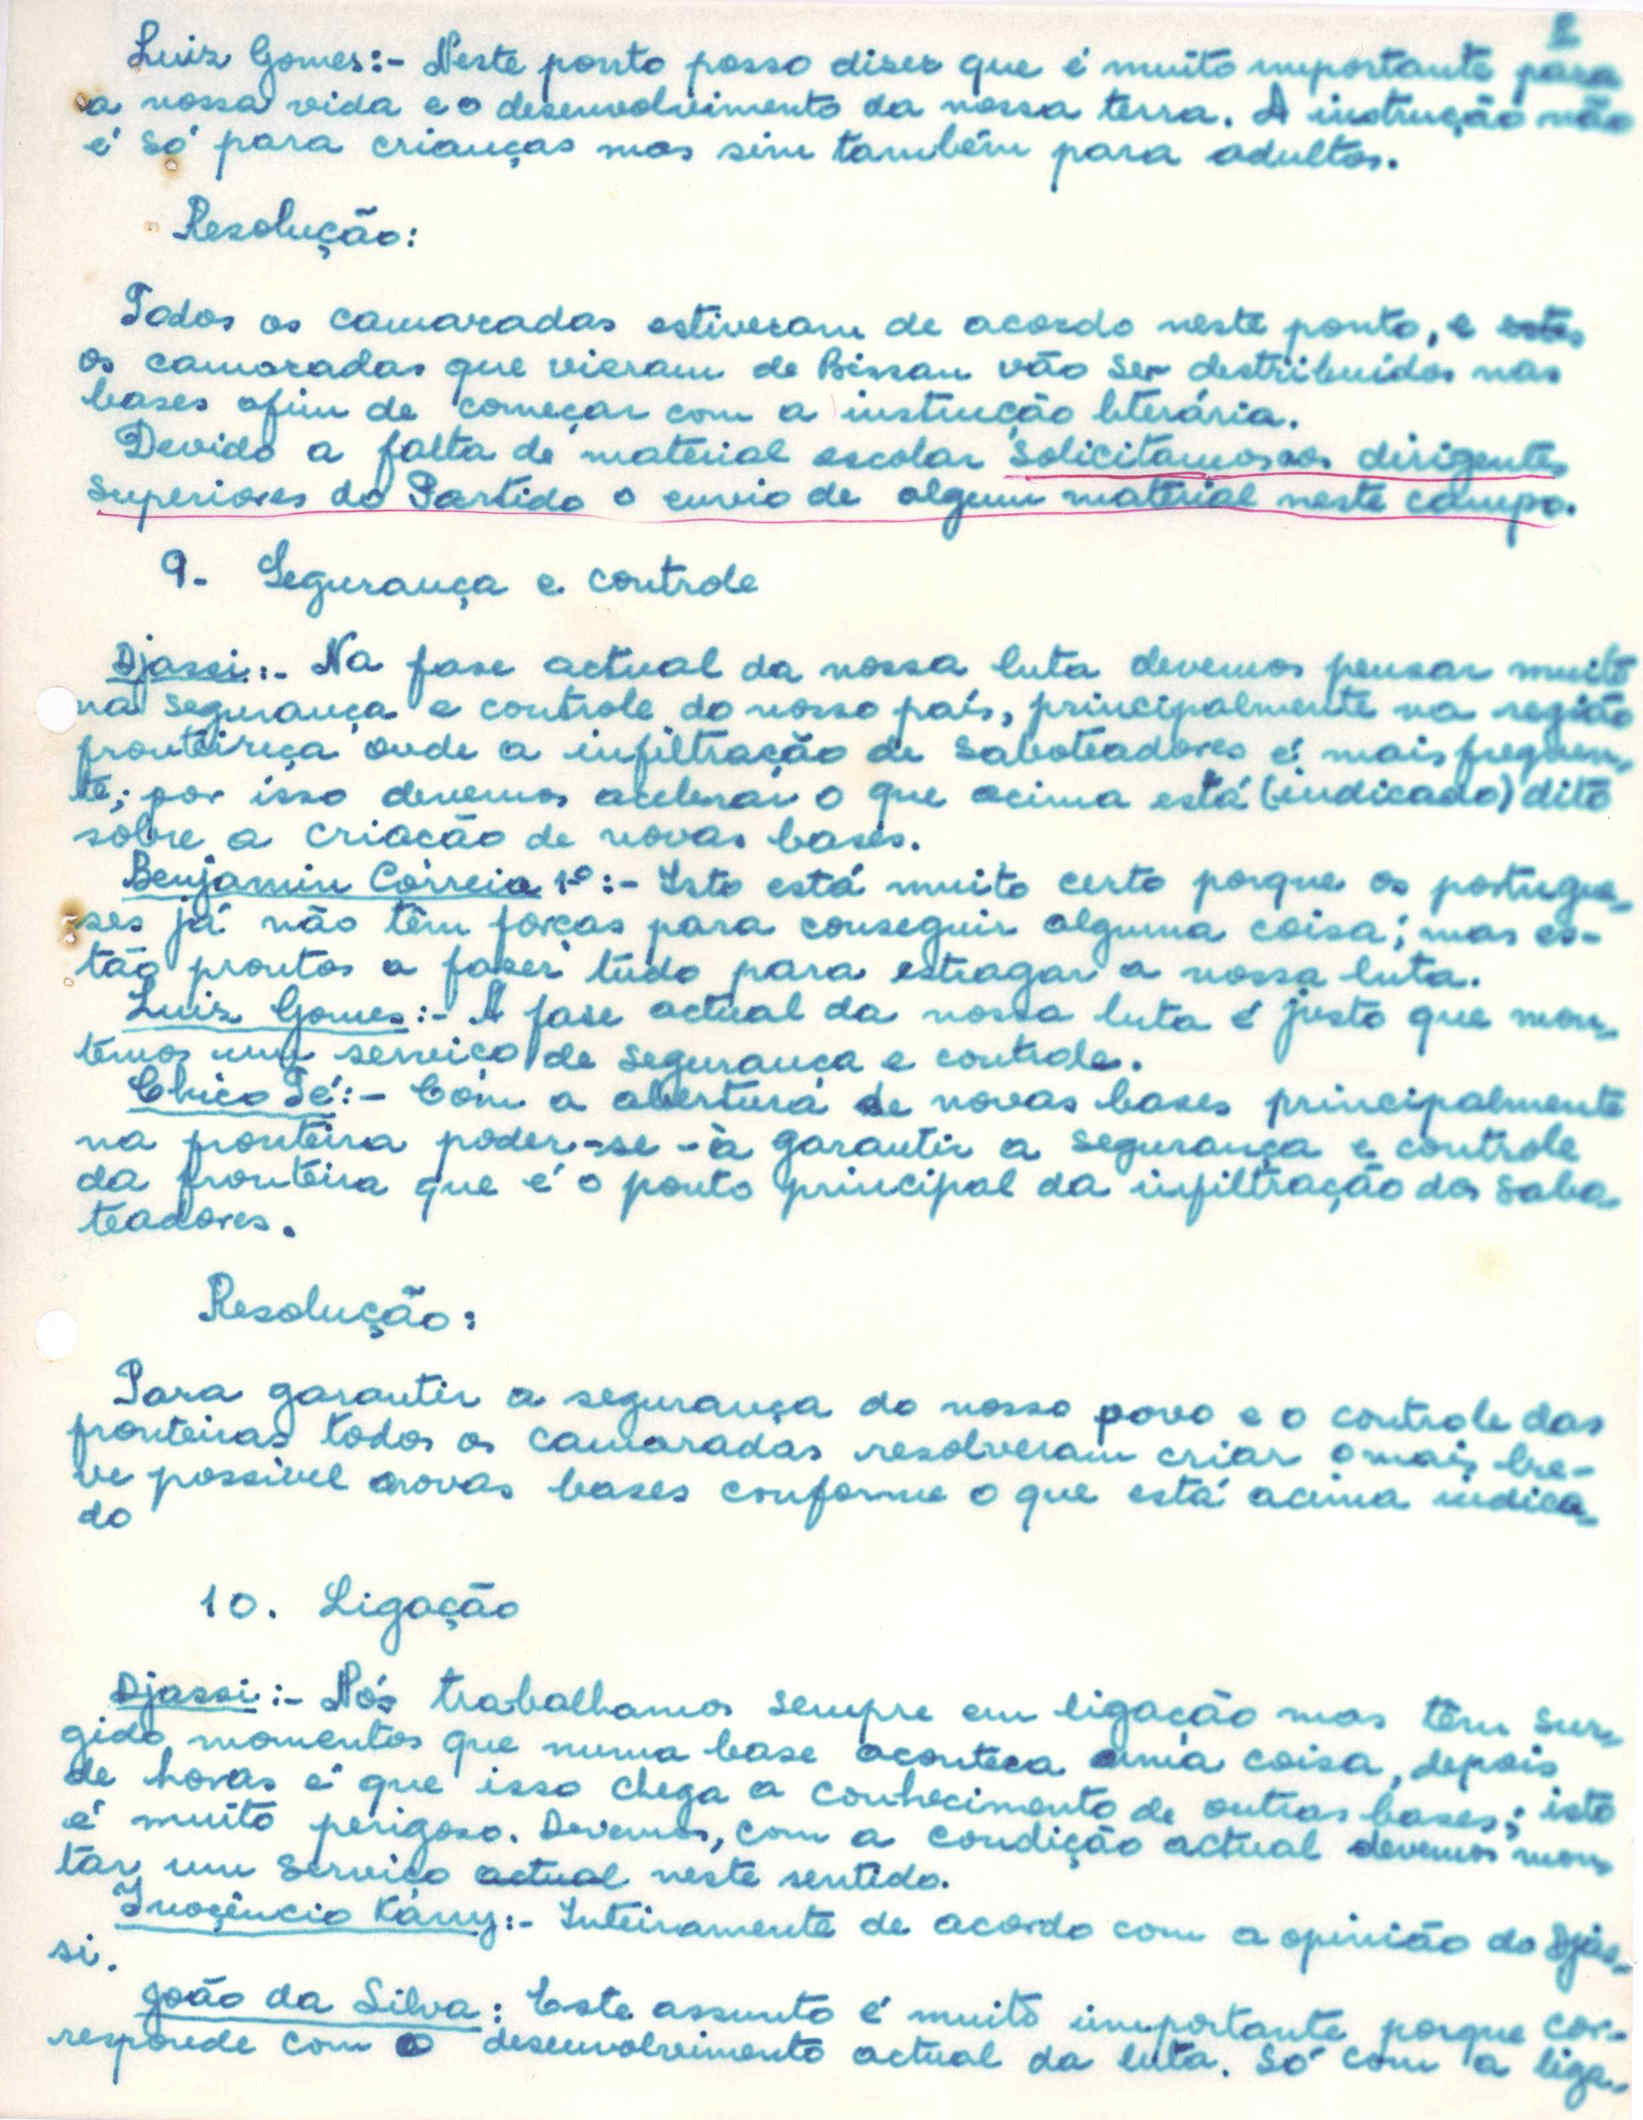 Luiz Gomes:- Neste ponto posso dizer que é muito importante para
a nossa vida e o desenvolvimento da nossa terra. A instrução não
é só para crianças mas sim também para adultos.
Resolução:
Todos os camaradas estiveram de acordo neste ponto, e
os camaradas que vieram de Bissau vão ser destribuídos nas
bases afim de começar com a instrução literária.
Devido a falta de material escolar solicitamos aos dirigentes
superiores do Partido o envio de algum material neste campo.
9- Segurança e controle
Djassi:- Na fase actual da nossa luta devemos pensar muito
na segurança e controle do nosso país, principalmente na região
fronteiriça onde a infiltração de saboteadores é mais frequen-
te; por isso devemos acelerar o que acima está (indicado) dito
sobre a criação de novas bases.
Benjamin Correia 1º:- Isto está muito certo porque os portugue-
ses já não têm forças para conseguir alguma coisa; mas es-
tão prontos a fazer tudo para estragar a nossa luta.
Luiz Gomes:- A fase actual da nossa luta é justo que mon-
temos um serviço de segurança e controle.
Chico Té:- Com a abertura de novas bases principalmente
na fronteira poder-se-à garantir a segurança e controle
da fronteira que é o ponto principal da infiltração dos sabo-
teadores.
Resolução:
Para garantir a segurança do nosso povo e o controle das
fronteiras todos os camaradas resolveram criar o mais bre-
ve possivel novas bases conforme o que está acima indica-
do
10. Ligação
Djassi:- Nós trabalhamos sempre em ligação mas têm sur-
gido momentos que numa base aconteça uma coisa, depois
de horas é que isso chega a conhecimento de outras bases; isto
é muito perigoso. Devemos, com a condição actual devemos mon-
tar um serviço actual neste sentido.
Inocêncio Kány:- Inteiramente de acordo com a opinião do Djas-
si.
João da Silva: Este assunto é muito importante porque cor-
responde com o desenvolvimento actual da luta. Só com a liga-